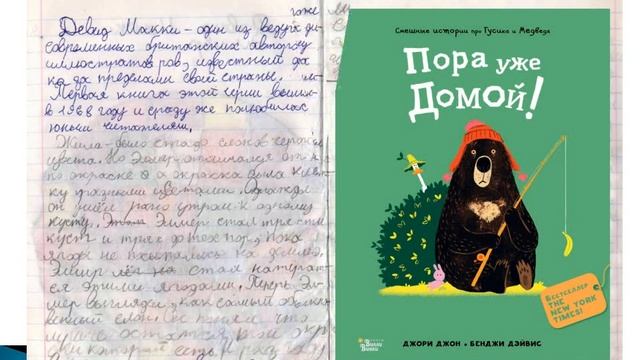 тоже
Девид Макки - один из ведущ
современных британских авторов
иллюстраторов, известный да
ко за пределами своей страны.
Первая книга этой серии вышла
в 1968 году и сразу же полюбилась
юным читателям.
Жило-было стадо слонов
цвета. Но Элмер отличался от
по окраске а окраска была в клет
ку разными цветами. Однажды
он ушёл рано утром к одному
кусту. Этот Элмер стал трясти
куст и тряс до тех пор, пока
ягоды не посыпались на землю.
Элмер стал натират
ся этими ягодами. Теперь Эл
мер выглядел, как самый обыкно
венный слон. Но понял что
лучше остаться в
Смешные истории про Гусика и Медведя
Пора уже
Домой!
Бестселлер
THE
NEW YORK
TIMES!
Вилли
Винки
ДЖОРИ ДЖОН • БЕНДЖИ ДЭЙВИС